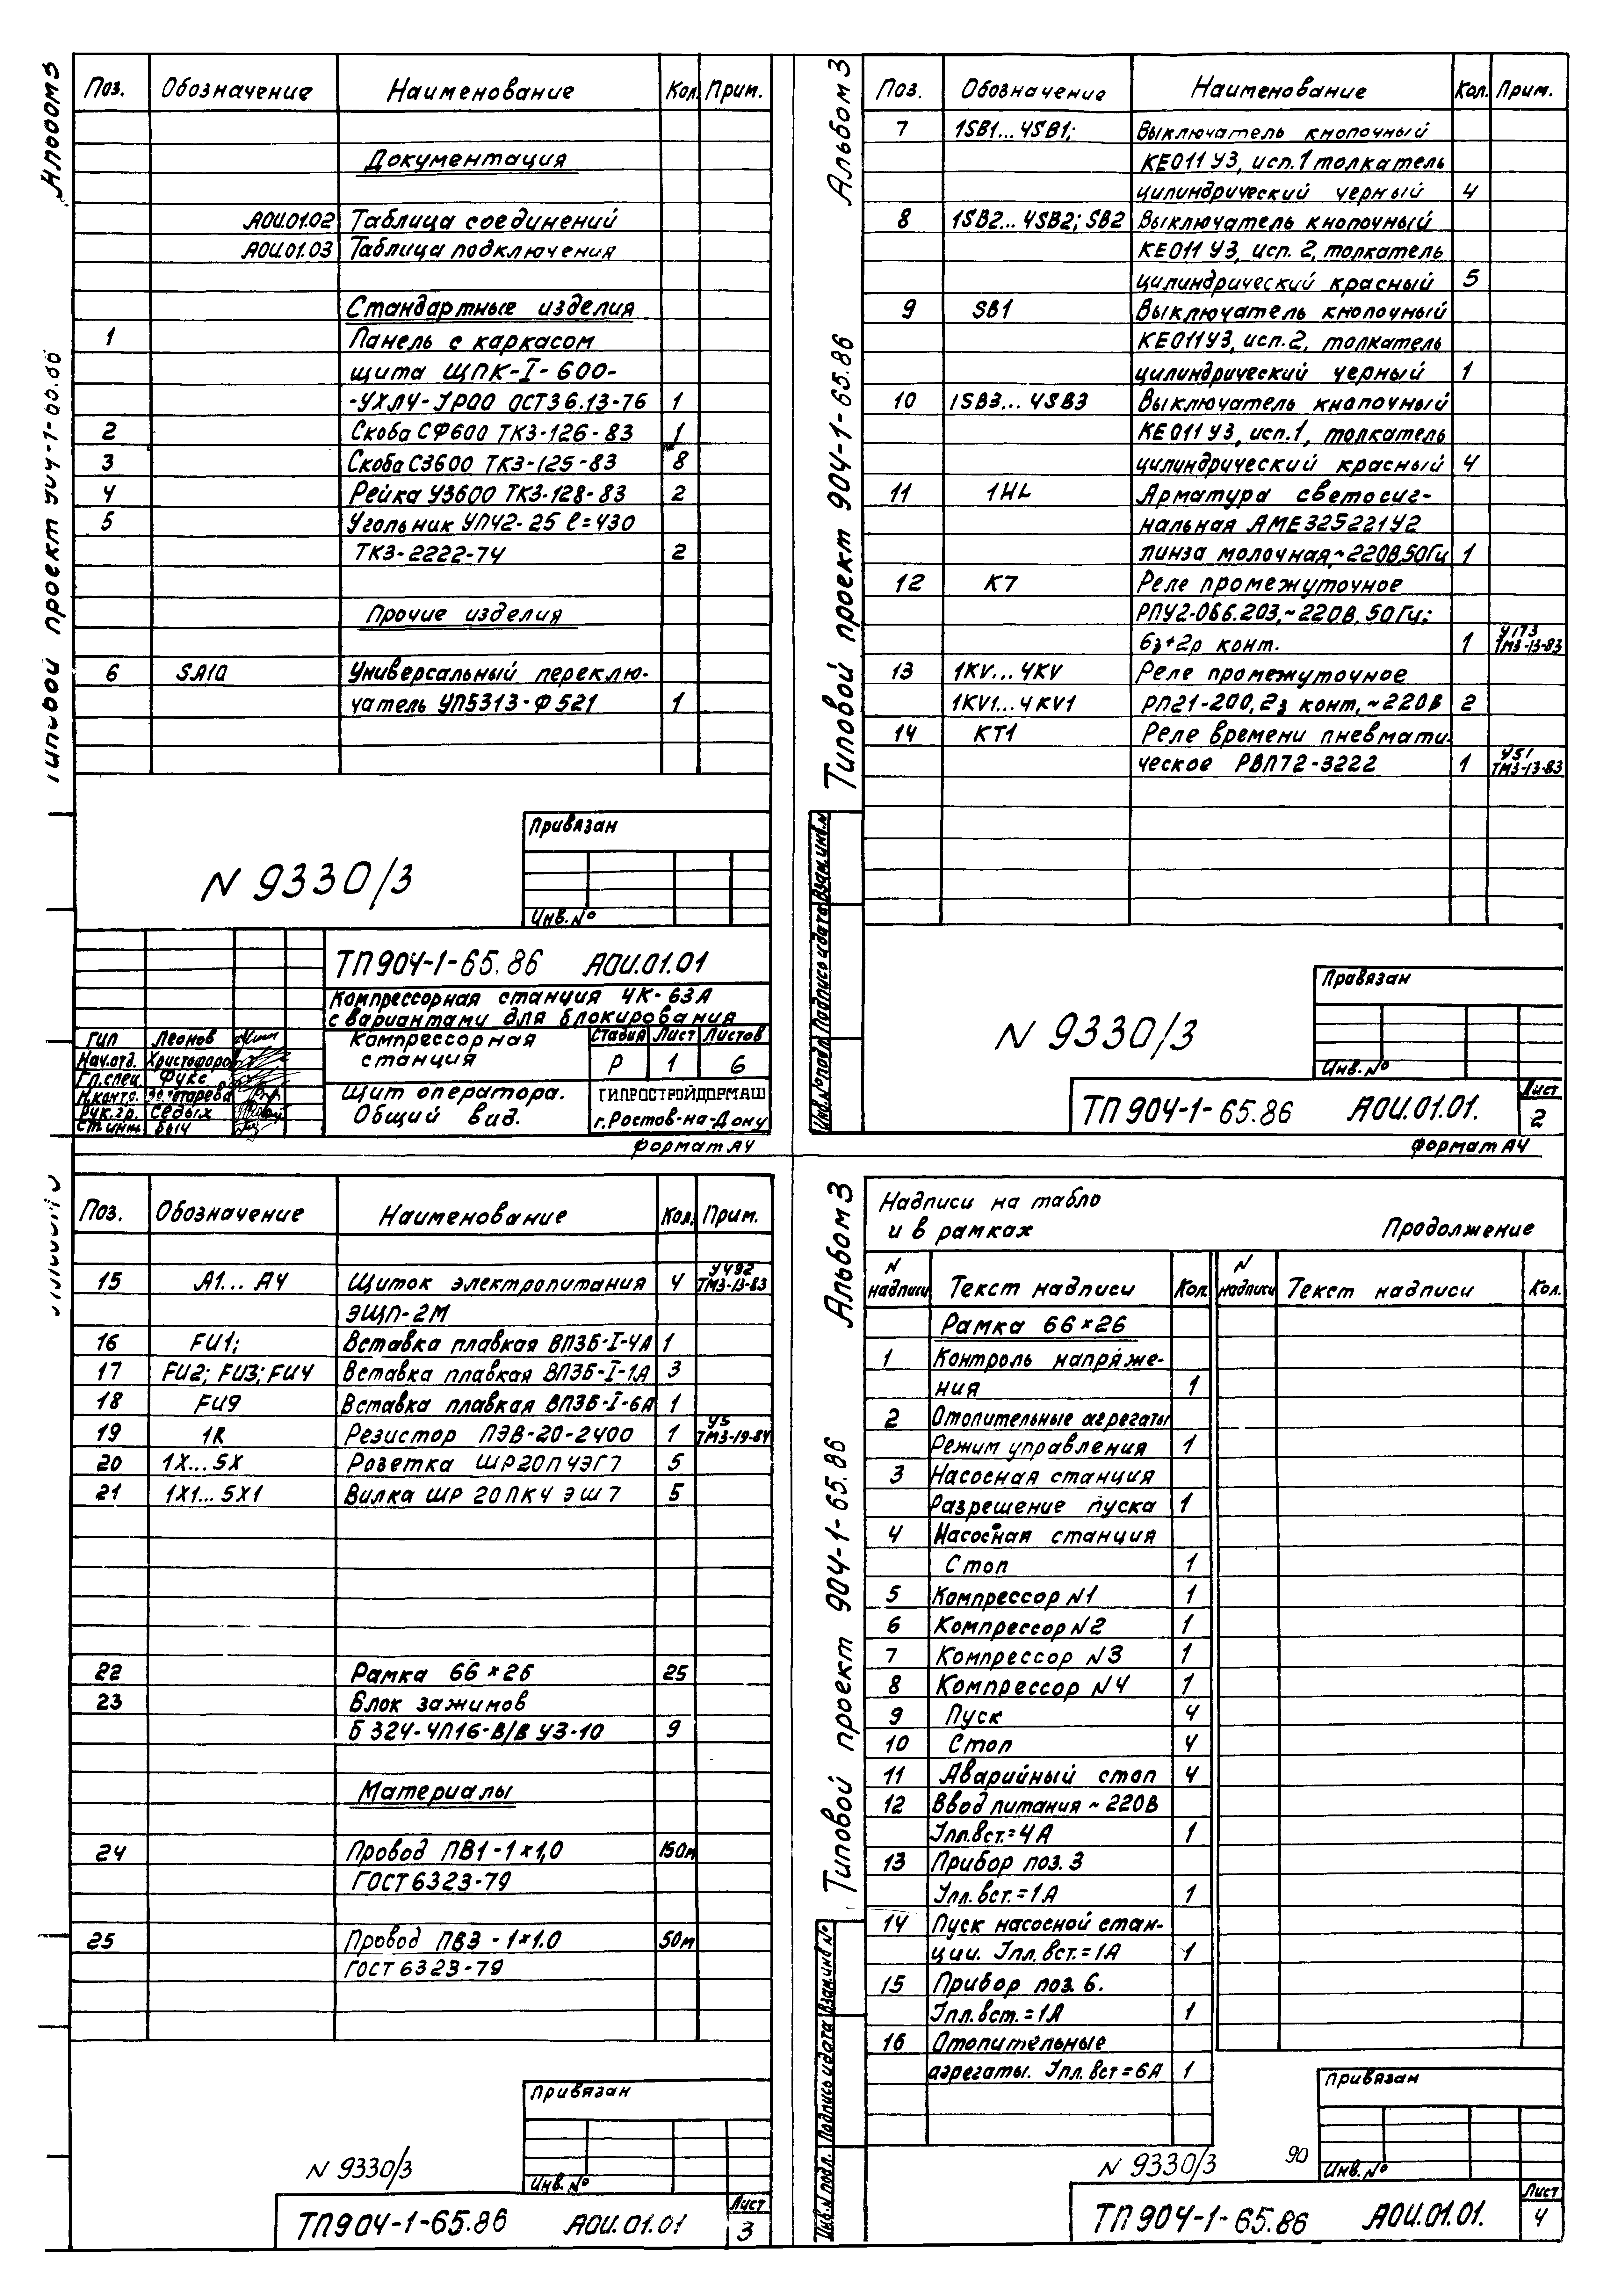 Альбом 3
Типовой проект 904-1-65.86
Поз. Обозначение Наименование Кол. Прим.
Документация
АОИ.01.02 Таблица соединений
АОИ.01.03 Таблица подключения
Стандартные изделия
1 Панель с каркасом
щита ЩПК-I-600-
-УХЛ4-IР00 ОСТ36.13-76 1
2 Скоба СФ600 ТК3-126-83 1
3 Скоба С3600 ТК3-125-83 8
4 Рейка У3600 ТК3-128-83 2
5 Угольник УП42-25 ℓ=430
ТК3-2222-74 2
Прочие изделия
6 SA10 Универсальный переклю-
чатель УП5313-Ф521 1
Привязан
N 9330/3
Инв.№
ТП904-1-65.86 АОИ.01.01
Компрессорная станция 4К-63А
с вариантами для блокирования
ГИП Леонов
Нач.отд. Христофоров
Гл.спец. Фукс
Н.контр. Золотарева
Рук.гр. Седых
Ст.инж. Быч
Компрессорная
станция
Стадия Лист Листов
Р 1 6
Щит оператора.
Общий вид.
ГИПРОСТРОЙДОРМАШ
г.Ростов-на-Дону
формат А4
Альбом 3
Типовой проект 904-1-65.86
Поз. Обозначение Наименование Кол. Прим.
7 1SB1...4SB1; Выключатель кнопочный
КЕ011У3, исп.1 толкатель
цилиндрический черный 4
8 1SB2...4SB2; SB2 Выключатель кнопочный
КЕ011У3, исп. 2, толкатель
цилиндрический красный 5
9 SB1 Выключатель кнопочный
КЕ011У3, исп.2, толкатель
цилиндрический черный 1
10 1SB3...4SB3 Выключатель кнопочный
КЕ011У3, исп.1, толкатель
цилиндрический красный 4
11 1HL Арматура светосиг-
нальная АМЕ325221У2
линза молочная,~220В,50Гц 1
12 К7 Реле промежуточное
РПУ2-066.203,~220В, 50Гц;
6з+2р конт. 1 У173 ТМ3-13-83
13 1KV...4KV Реле промежуточное
1KV1...4KV1 РП21-200, 2з конт,~220В 2
14 КТ1 Реле времени пневмати-
ческое РВП72-3222 1 У51 ТМ3-13-83
Инв.№подл. Подпись и дата Взам.инв.№
Привязан
N 9330/3
Инв.№
ТП904-1-65.86 АОИ.01.01. Лист 2
формат А4
Поз. Обозначение Наименование Кол. Прим.
15 А1...А4 Щиток электропитания 4 У492 ТМ3-13-83
ЭЩП-2М
16 FU1; Вставка плавкая ВП3Б-I-4А 1
17 FU2; FU3; FU4 Вставка плавкая ВП3Б-I-1А 3
18 FU9 Вставка плавкая ВП3Б-I-6А 1
19 1R Резистор ПЭВ-20-2400 1 У5 ТМ3-19-84
20 1Х...5Х Розетка ШР20П4ЭГ7 5
21 1Х1...5Х1 Вилка ШР 20ПК4 ЭШ7 5
22 Рамка 66×26 25
23 Блок зажимов
Б324-4П16-В/В У3-10 9
Материалы
24 Провод ПВ1-1×1,0 150м
ГОСТ6323-79
25 Провод ПВ3-1×1.0 50м
ГОСТ6323-79
Привязан
N 9330/3
Инв.№
ТП904-1-65.86 АОИ.01.01 Лист 3
Альбом 3
Типовой проект 904-1-65.86
Надписи на табло
и в рамках Продолжение
N надписи Текст надписи Кол. N надписи Текст надписи Кол.
Рамка 66×26
1 Контроль напряже-
ния 1
2 Отопительные агрегаты
Режим управления 1
3 Насосная станция
Разрешение пуска 1
4 Насосная станция
Стоп 1
5 Компрессор N1 1
6 Компрессор N2 1
7 Компрессор N3 1
8 Компрессор N4 1
9 Пуск 4
10 Стоп 4
11 Аварийный стоп 4
12 Ввод питания ~220В
Iпл.вст.=4А 1
13 Прибор поз. 3
Iпл.вст.=1А 1
14 Пуск насосной стан-
ции. Iпл.вст.=1А 1
15 Прибор поз. 6.
Iпл.вст.=1А 1
16 Отопительные
агрегаты. Iпл.вст=6А 1
Инв.N подл. Подпись и дата Взам.инв №
Привязан
N 9330/3 90
Инв.№
ТП904-1-65.86 АОИ.01.01. Лист 4